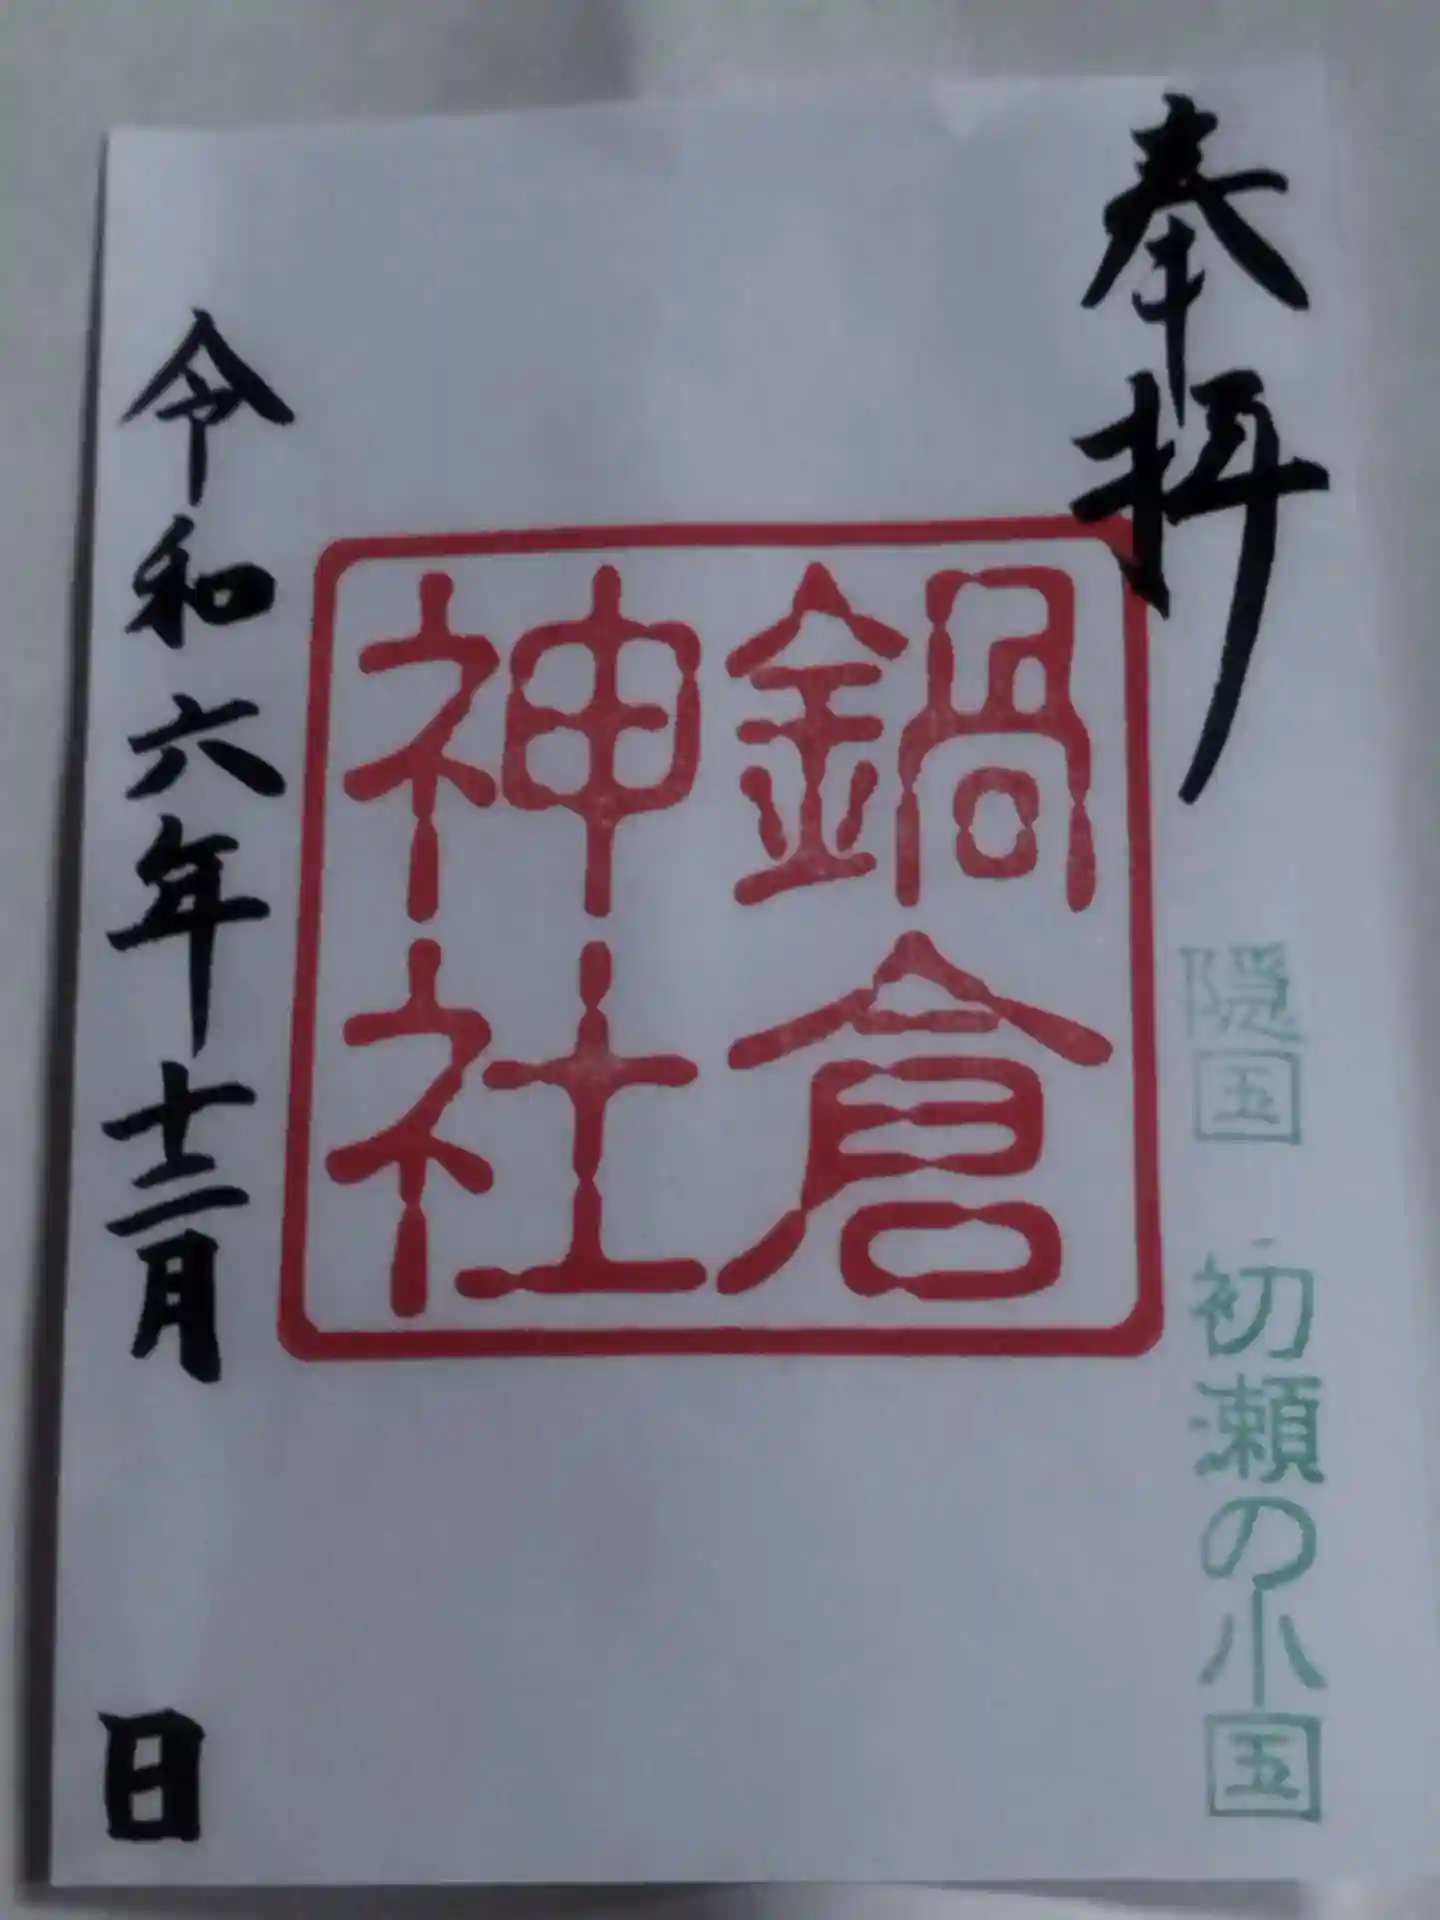 奉拝
隠国 初瀬の小国
鍋倉
神社
令和六年十二月 日